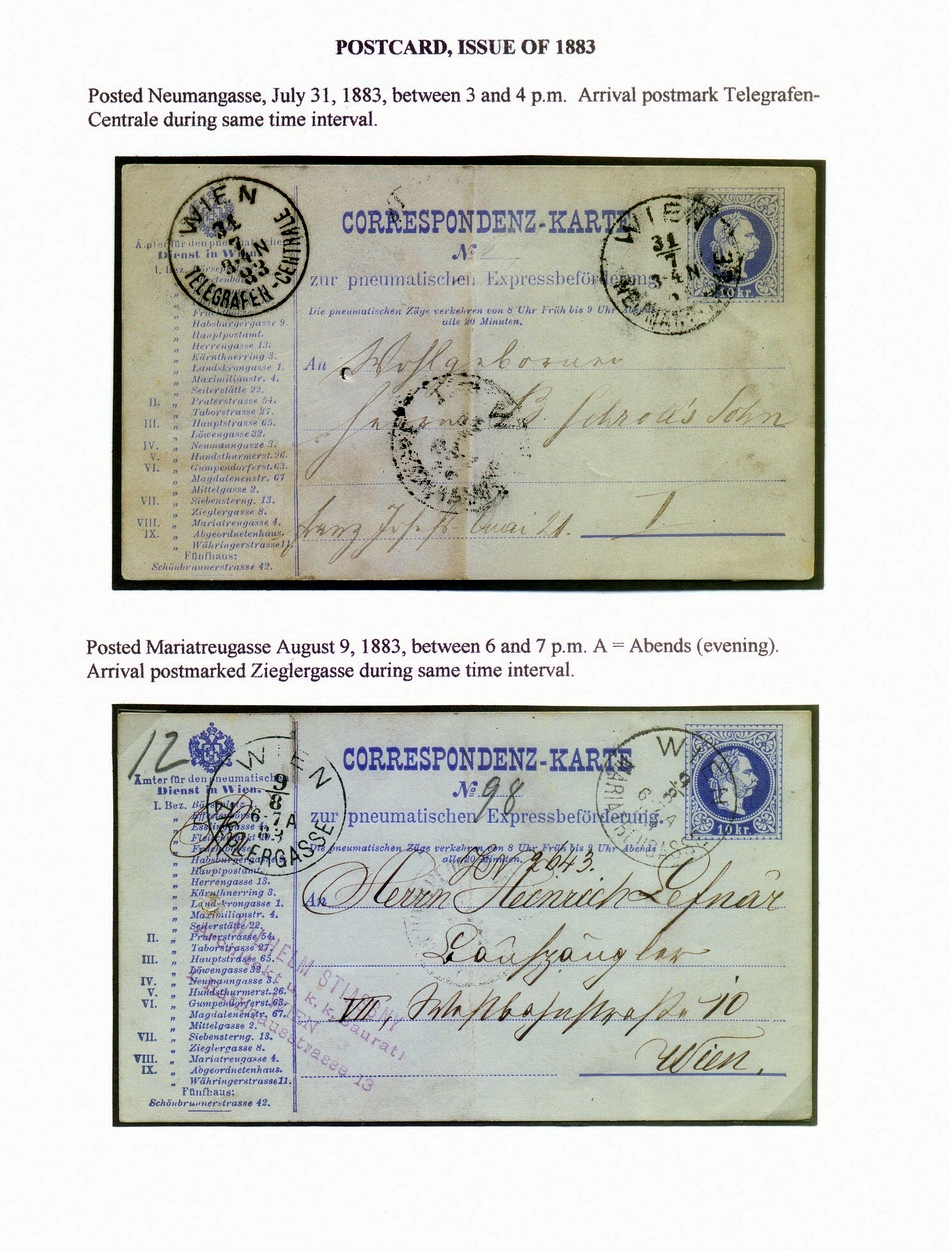 POSTCARD, ISSUE OF 1883
Posted Neumangasse, July 31, 1883, between 3 and 4 p.m. Arrival postmark Telegrafen-
Centrale during same time interval.
WIEN
31
7
3-4 N
83
TELEGRAFEN-CENTRALE
Ämter für den pneumatisch
Dienst in Wi
I. Bez.
Habsburgergasse 9.
Hauptpostamt.
Herrengasse 13.
Kärnthnerring 3.
Landskrongasse 1.
Maximilianstr. 4.
Seilerstätte 22.
II. „ Praterstrasse 54.
„ Taborstrasse 27.
III. „ Hauptstrasse 65.
„ Löwengasse 32.
IV. „ Neumanngasse 3.
V. „ Hundsthurmerst. 26.
VI. „ Gumpendorferst. 63.
„ Magdalenenstr. 67
„ Mittelgasse 2.
VII. „ Siebensterng. 13.
„ Zieglergasse 8.
VIII. „ Mariatreugasse 4.
IX. „ Abgeordnetenhaus.
„ Währingerstrasse 11.
Fünfhaus:
Schönbrunnerstrasse 42.
CORRESPONDENZ-KARTE
No
zur pneumatischen Expressbeförderung.
Die pneumatischen Züge verkehren von 8 Uhr Früh bis 9 Uhr Abends
alle 20 Minuten.
WIEN
31
7
3-4 N
10 kr.
An Wohlgeboren
Herrn B. Schroll's Sohn
Franz Josefs Quai 21. I
Posted Mariatreugasse August 9, 1883, between 6 and 7 p.m. A = Abends (evening).
Arrival postmarked Zieglergasse during same time interval.
12
Ämter für den pneumatisch
Dienst in Wien.
I. Bez.
WIEN
9
8
6-7 A
83
ZIEGLERGASSE
Esslingg
Habsburgergasse 9
Hauptpostamt
Herrengasse 13.
Kärnthnerring 3.
Landskrongasse 1.
Maximilianstr. 4.
Seilerstätte 22.
II. „ Praterstrasse 54.
„ Taborstrasse 27.
III. „ Hauptstrasse 65.
„ Löwengasse 32.
IV. „ Neumanngasse 3.
V. „ Hundsthurmerst. 26.
VI. „ Gumpendorferst. 63.
„ Magdalenenstr. 67
„ Mittelgasse 2.
VII. „ Siebensterng. 13.
„ Zieglergasse 8.
VIII. „ Mariatreugasse 4.
IX. „ Abgeordnetenhaus.
„ Währingerstrasse 11.
Fünfhaus:
Schönbrunnerstrasse 42.
CORRESPONDENZ-KARTE
No 98
zur pneumatischen Expressbeförderung.
Die pneumatischen Züge verkehren von 8 Uhr Früh bis 9 Uhr Abends
alle 20 Minuten.
2643.
WIEN
9
8
10 kr.
An Herrn Heinrich Lefnär
VII, Westbahnstraße 10
Wien.
WILHELM
k. k. Baurat
WIEN
13